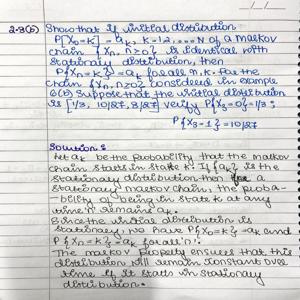 2.3(b) Show that if initial distribution
P[X₀=k] = aₖ, k=1,2,....N of a markov
chain {Xₙ, n≥0} is identical with
stationary distribution, then
P{Xₙ=k} = aₖ for all n, k. For the
chain {Xₙ, n≥0} considered in example
6(b) Suppose that the initial distribution
is [1/3, 10/27, 8/27] verify P{X₃=0}=1/3;
P{X₃=1}=10/27
Solution:
Let aₖ be the Probability that the markov
chain starts in state k. If {aₖ} is the
stationary distribution then for a
stationary markov chain, the proba-
-bility of being in state k at any
time n remains aₖ.
Since the initial distribution is
stationary, we have P{X₀=k}=aₖ and
P{Xₙ=k}=aₖ for all 'n'.
The markov property ensures that this
distribution will remain constant over
time if it starts in stationary
distribution.